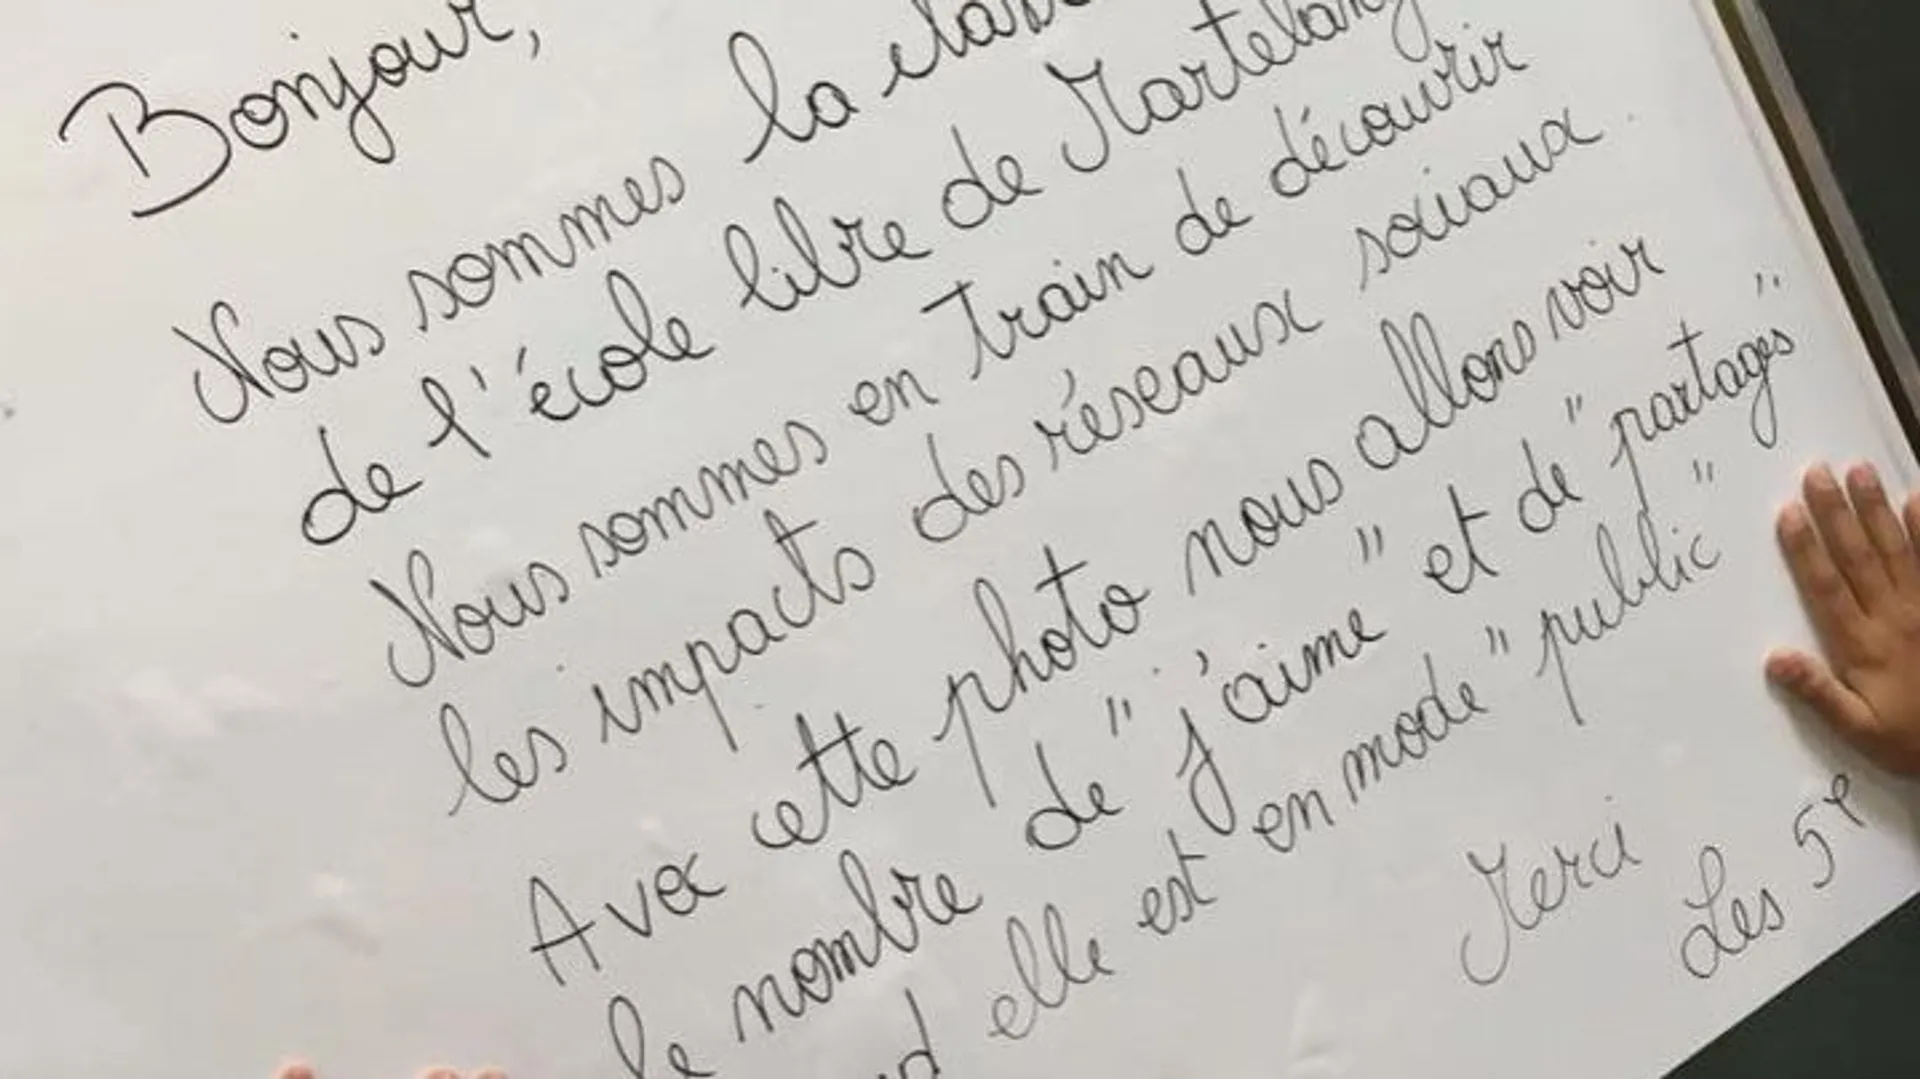 Bonjour,
Nous sommes la
de l'école libre de Martelang
Nous sommes en train de découvrir
les impacts des réseaux sociaux.
Avec cette photo nous allons voir
le nombre de "j'aime" et de "partages"
elle est en mode "public"
Merci
Les 5e